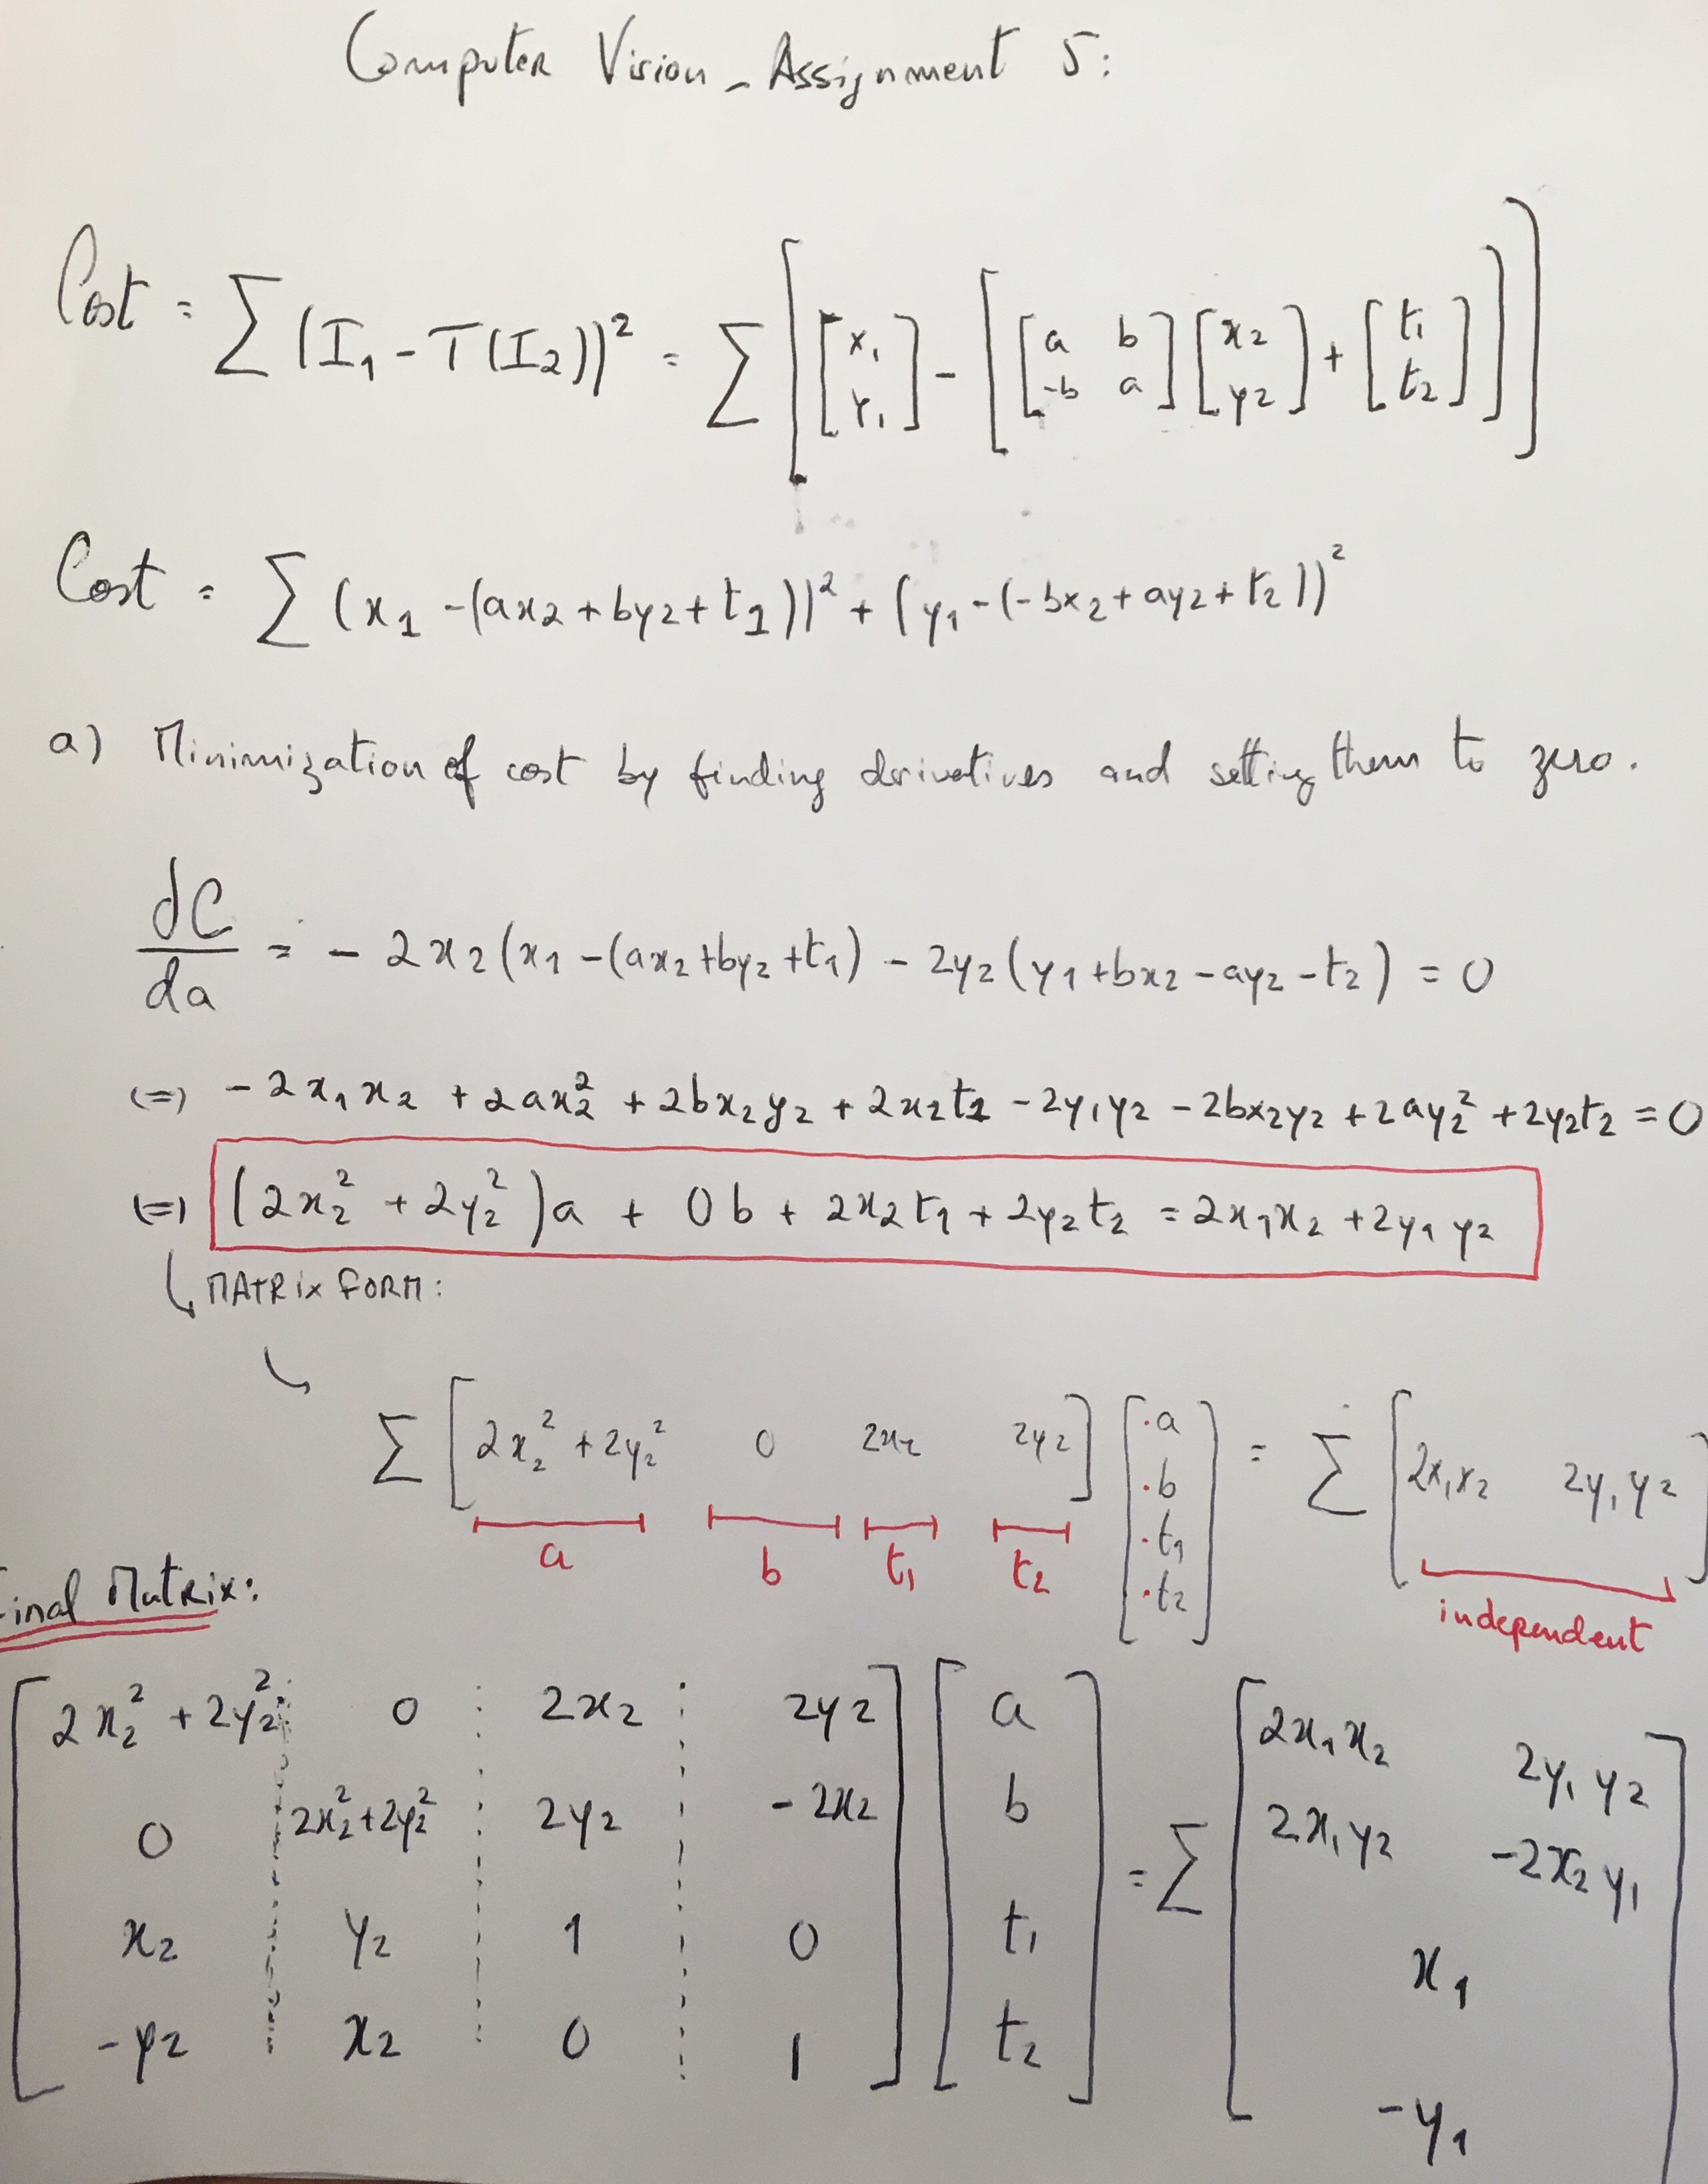 Computer Vision - Assignment 5:
Cost = ∑ (I₁ - T(I₂))² = ∑ [ [x₁ y₁] - [ [a b -b a] [x₂ y₂] + [t₁ t₂] ] ]
Cost = ∑ (x₁ -(ax₂ + by₂ + t₁))² + (y₁ -(-bx₂ + ay₂ + t₂))²
a) Minimization of cost by finding derivatives and setting them to zero.
dC/da = - 2x₂(x₁ -(ax₂+by₂+t₁) - 2y₂(y₁+bx₂-ay₂-t₂) = 0
(=) -2x₁x₂ + 2ax₂² + 2bx₂y₂ + 2x₂t₁ - 2y₁y₂ - 2bx₂y₂ + 2ay₂² + 2y₂t₂ = 0
(=) (2x₂² + 2y₂²)a + 0b + 2x₂t₁ + 2y₂t₂ = 2x₁x₂ + 2y₁y₂
MATRIX FORM:
∑ [2x₂² + 2y₂² 0 2x₂ 2y₂] [a b t₁ t₂] = ∑ [2x₁x₂ 2y₁y₂]
a b t₁ t₂ independent
Final Matrix:
2x₂² + 2y₂² 0 2x₂ 2y₂ a 2x₁x₂ 2y₁y₂
0 2x₂²+2y₂² 2y₂ -2x₂ b = ∑ 2x₁y₂ -2x₂y₁
x₂ y₂ 1 0 t₁ x₁
-y₂ x₂ 0 1 t₂ -y₁